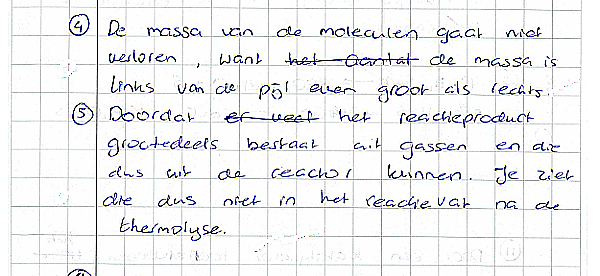 ④ De massa van de moleculen gaat niet
verloren, want het aantal de massa is
links van de pijl even groot als rechts.
⑤ Doordat er veel het reactieproduct
grootedeels bestaat uit gassen en die
dus uit de reactor kunnen. Je ziet
die dus niet in het reactievat na de
thermolyse.